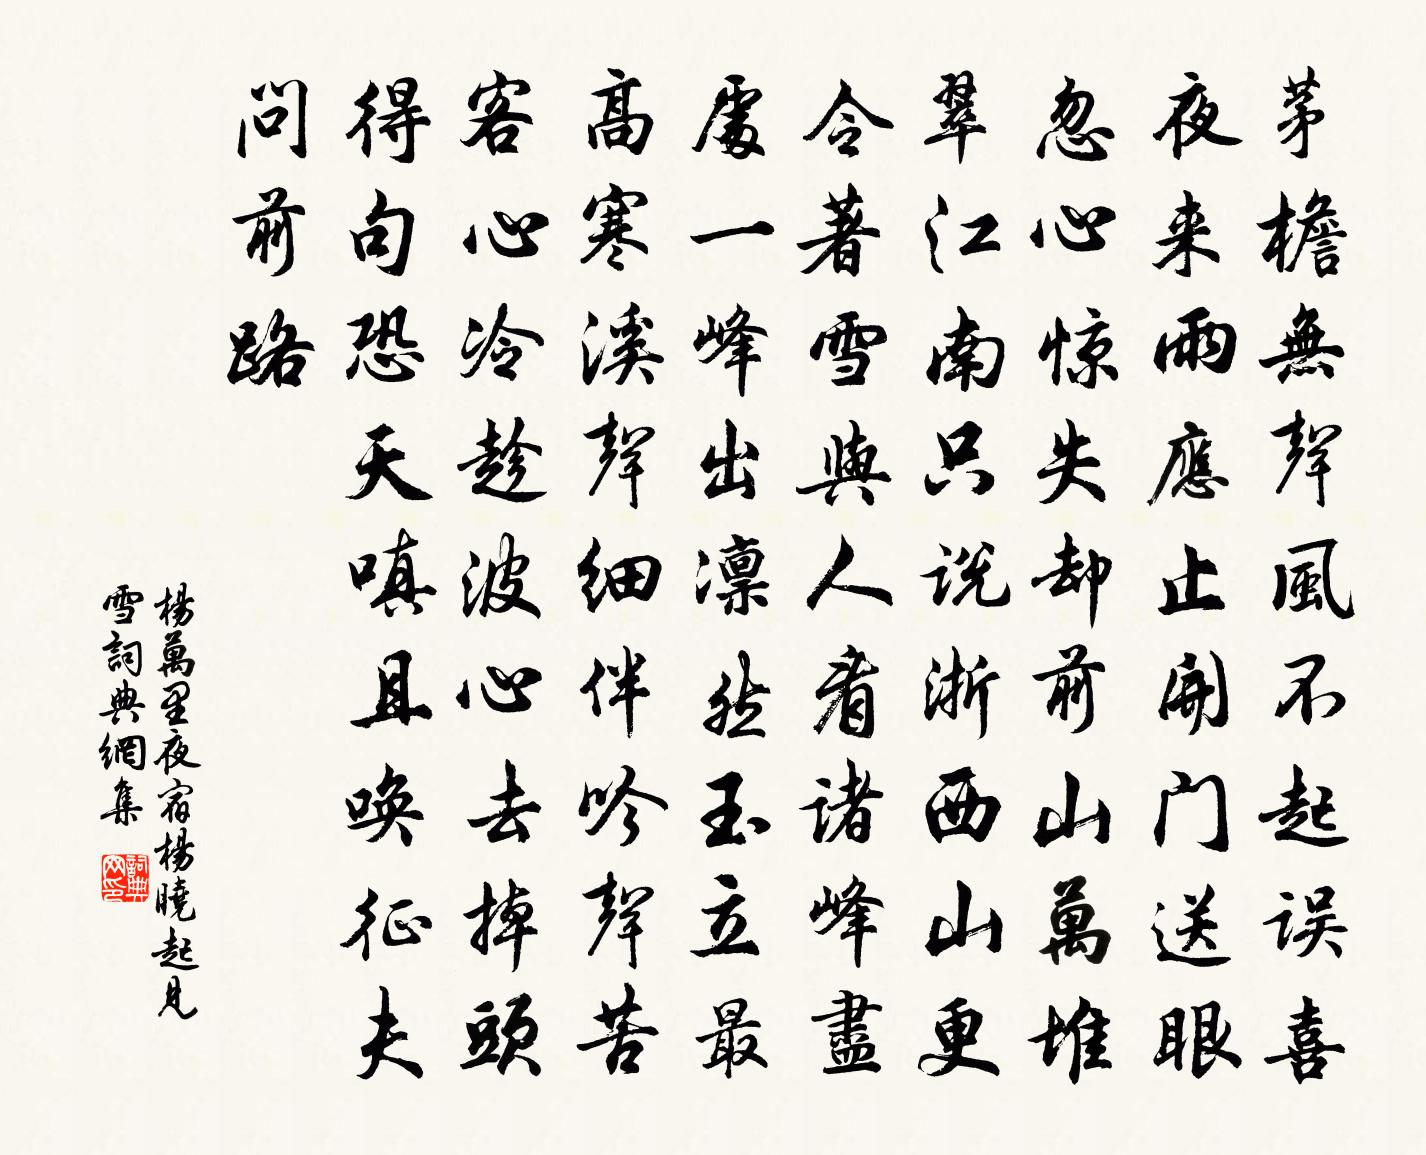 茅檐無聲風不起誤喜
夜来雨應止開门送眼
忽心惊失却前山萬堆
翠江南只説浙西山更
令著雪與人看諸峰盡
處一峰出凛然玉立最
高寒溪聲細伴吟聲苦
客心冷趁波心去掉頭
得句恐天嗔且唤征夫
问前路
楊萬里夜宿楊曉起見
雪詞典網集
詞典
网印